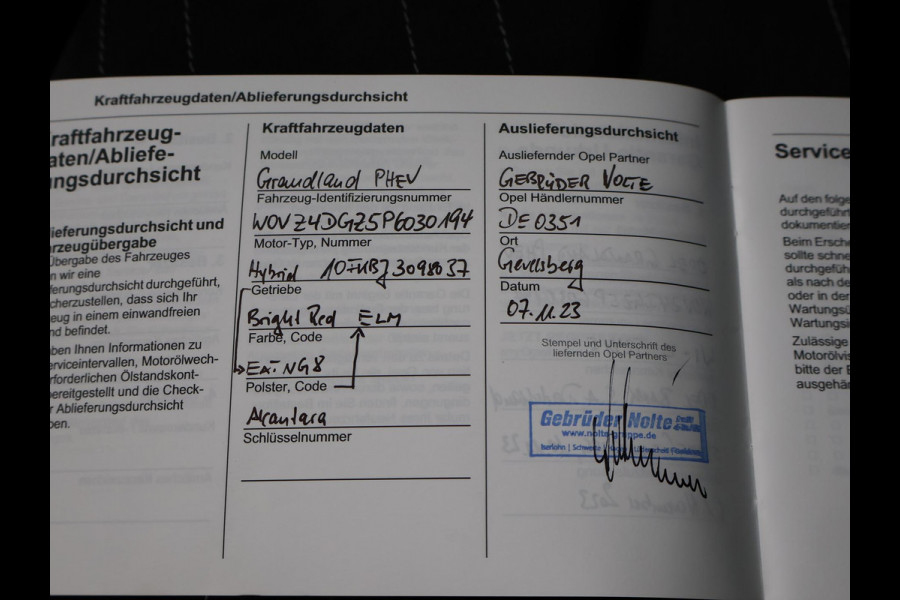 Kraftfahrzeugdaten/Ablieferungsdurchsicht
raftfahrzeug-
aten/Abliefe-
ngsdurchsicht
ieferungsdurchsicht und
rzeugübergabe
Übergabe des Fahrzeuges
n wir eine
erungsdurchsicht durchgeführt,
cherzustellen, dass sich Ihr
eug in einem einwandfreien
nd befindet.
ben Ihnen Informationen zu
erviceintervallen, Motorölwech-
rforderlichen Ölstandskont-
bereitgestellt und die Check-
r Ablieferungsdurchsicht
ben.
Kraftfahrzeugdaten
Modell
Grandland PHEV
Fahrzeug-Identifizierungsnummer
WOVZ4DGZ5P6030194
Motor-Typ, Nummer
Hybrid
Getriebe
Bright Red ELM
Farbe, Code
Polster, Code
Alcantara
Schlüsselnummer
Auslieferungsdurchsicht
Ausliefernder Opel Partner
GEBRÜDER NOLTE
Opel Händlernummer
DE 0351
Ort
Gevelsberg
Datum
07.11.23
Stempel und Unterschrift des
liefernden Opel Partners
Gebrüder Nolte
www.nolte-gruppe.de
Iserlohn | Schwerte
Service
Auf den folge
durchgeführt
dokumentier
Beim Ersche
sollte schne
durchgeführ
als nach de
oder in der
Wartungsü
Wartungsi
Zulässige
Motorölvis
bitte der B
ausgehär